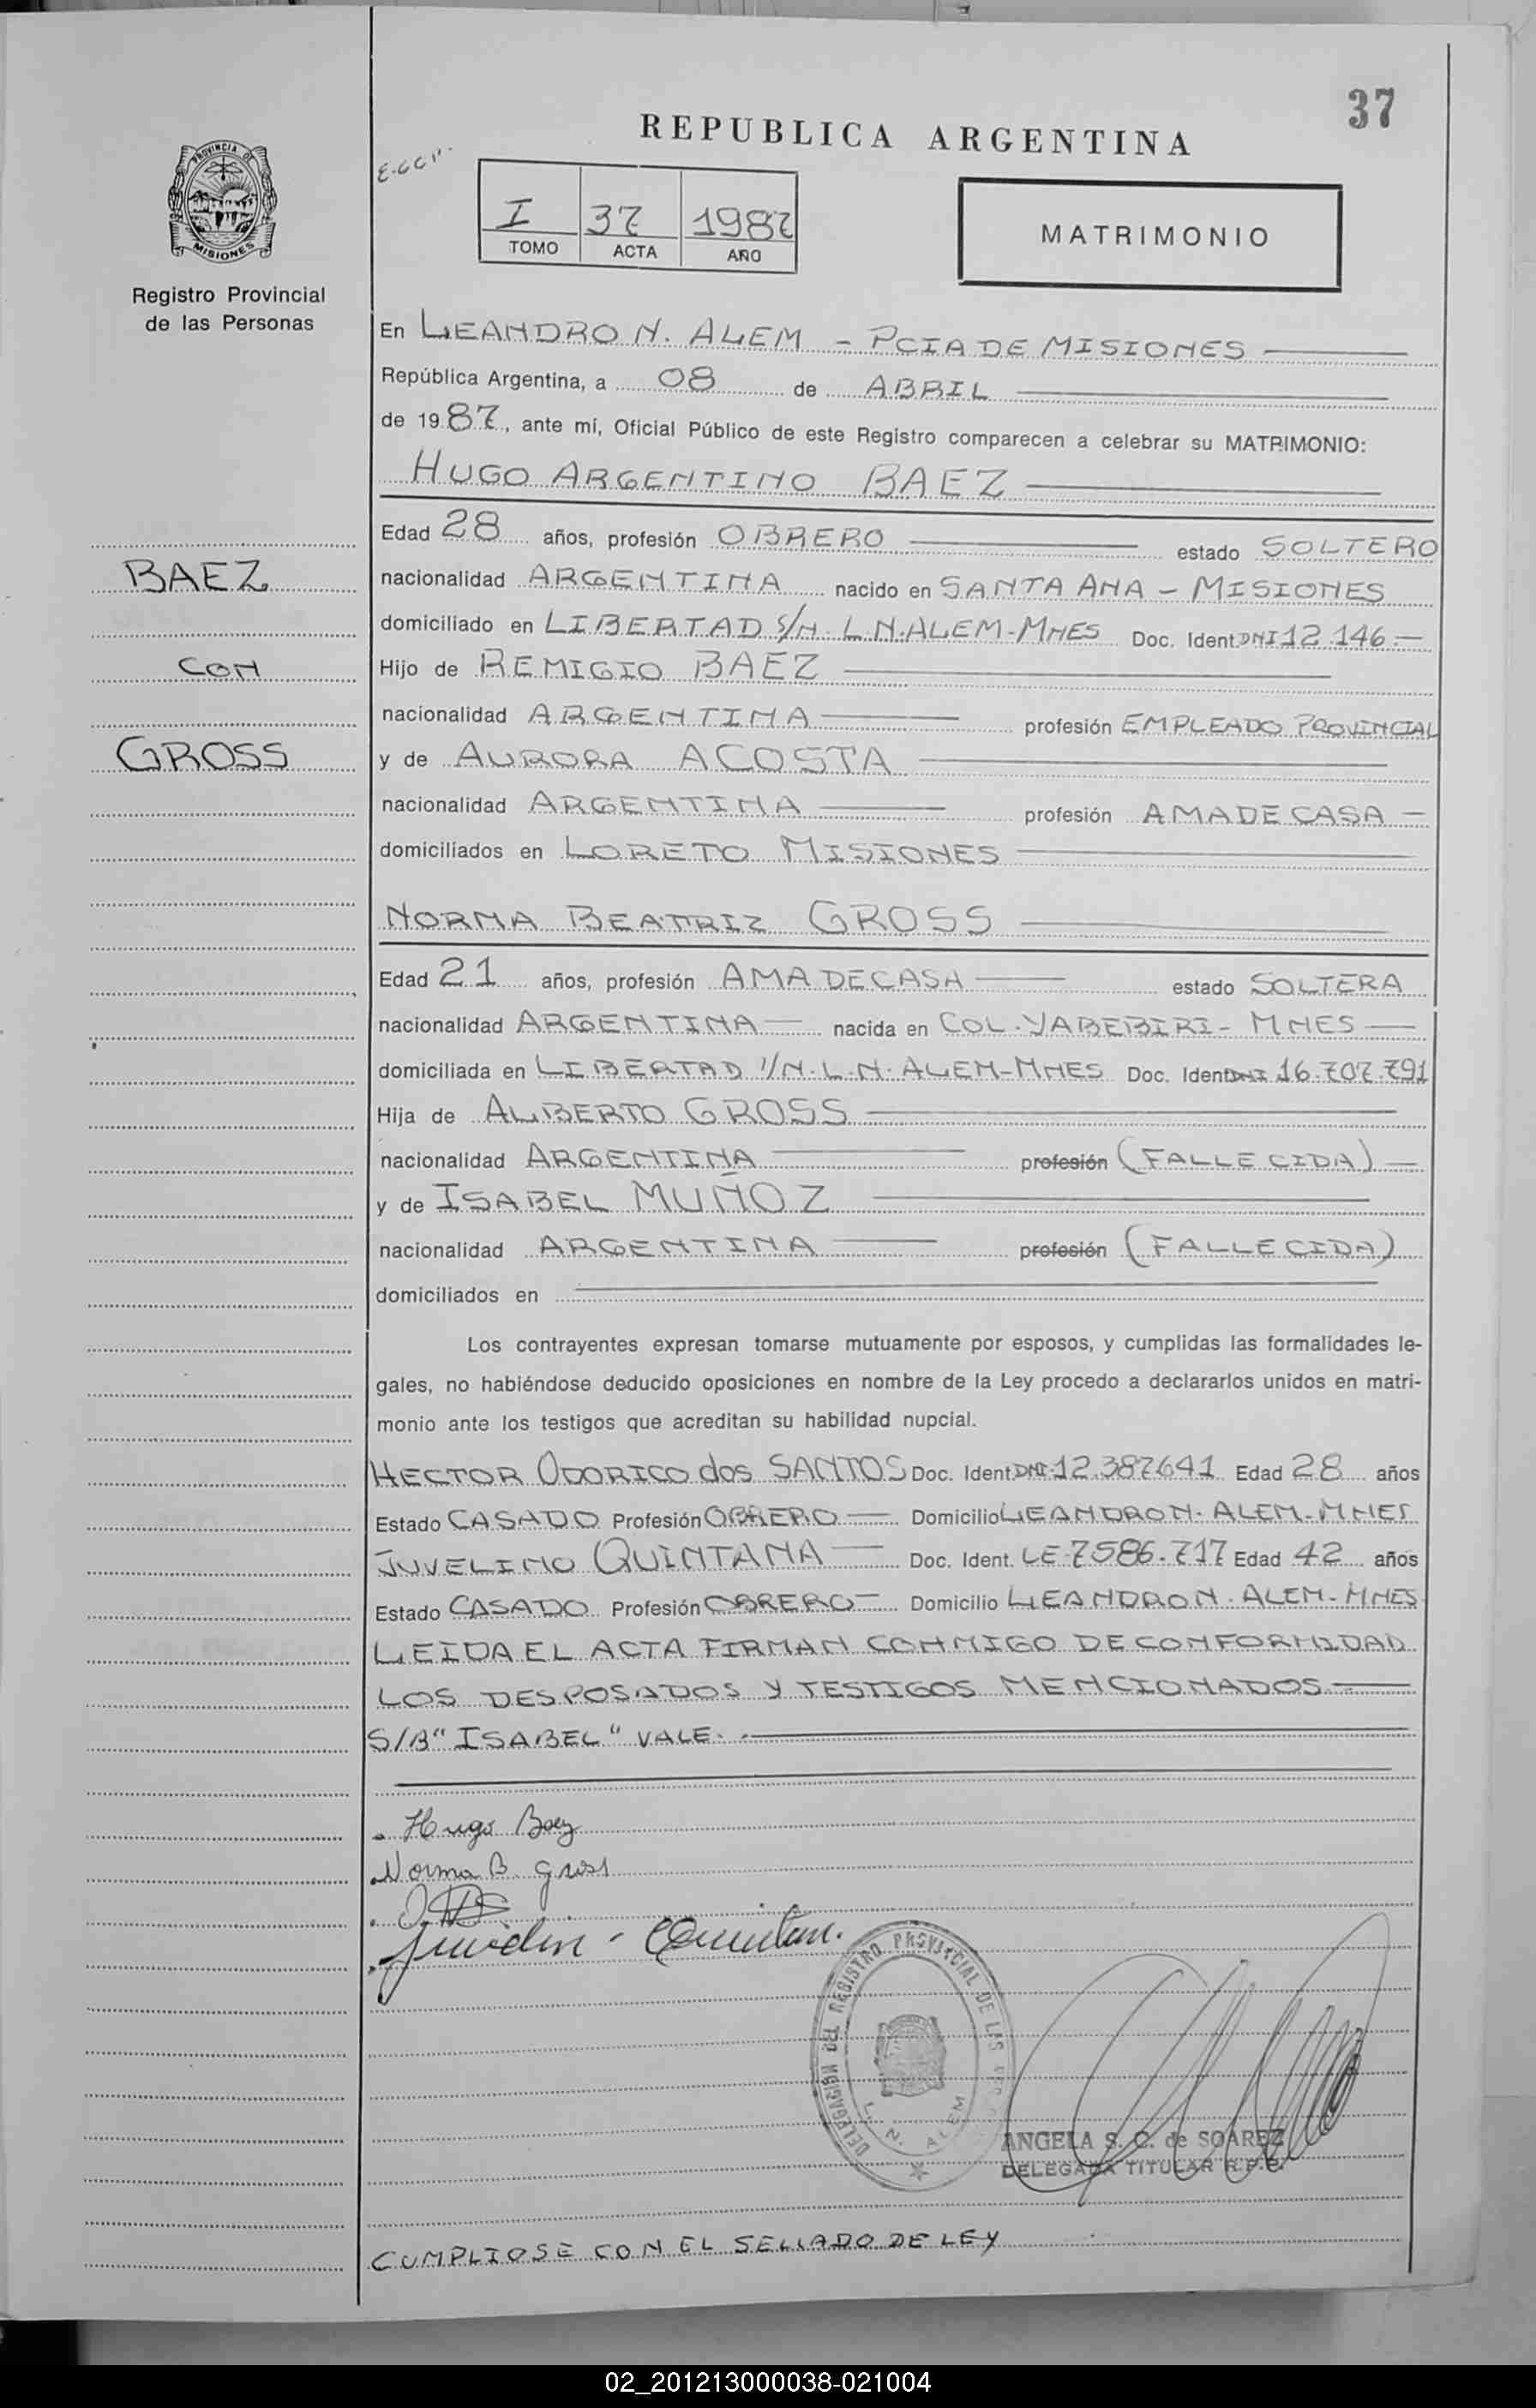 37
REPUBLICA ARGENTINA
PROVINCIA DE
MISIONES
Registro Provincial
de las Personas
I 37 1987
TOMO ACTA AÑO
MATRIMONIO
En LEANDRO N. ALEM - PCIA DE MISIONES
República Argentina, a 08 de ABRIL
de 1987, ante mí, Oficial Público de este Registro comparecen a celebrar su MATRIMONIO:
HUGO ARGENTINO BAEZ
Edad 28 años, profesión OBRERO estado SOLTERO
BAEZ
nacionalidad ARGENTINA nacido en SANTA ANA - MISIONES
domiciliado en LIBERTAD S/N. L.N. ALEM-MNES Doc. Ident. DNI 12.146.-
CON
Hijo de REMIGIO BAEZ
nacionalidad ARGENTINA profesión EMPLEADO PROVINCIAL
GROSS
y de AURORA ACOSTA
nacionalidad ARGENTINA profesión AMA DE CASA -
domiciliados en LORETO MISIONES
NORMA BEATRIZ GROSS
Edad 21 años, profesión AMA DE CASA estado SOLTERA
nacionalidad ARGENTINA nacida en COL. YABEBIRI - MNES
domiciliada en LIBERTAD S/N. L.N. ALEM-MNES Doc. Ident. DNI 16.707.791
Hija de ALBERTO GROSS
nacionalidad ARGENTINA profesión (FALLECIDA) -
y de ISABEL MUÑOZ
nacionalidad ARGENTINA profesión (FALLECIDA)
domiciliados en
Los contrayentes expresan tomarse mutuamente por esposos, y cumplidas las formalidades le-
gales, no habiéndose deducido oposiciones en nombre de la Ley procedo a declararlos unidos en matri-
monio ante los testigos que acreditan su habilidad nupcial.
HECTOR ODORICO dos SANTOS Doc. Ident. DNI 12.387641 Edad 28 años
Estado CASADO Profesión OBRERO Domicilio LEANDRO N. ALEM-MNES
JUVELINO QUINTANA Doc. Ident. LE-7586.717 Edad 42 años
Estado CASADO Profesión OBRERO Domicilio LEANDRO N. ALEM-MNES
LEIDA EL ACTA FIRMAN CONMIGO DE CONFORMIDAD
LOS DESPOSADOS Y TESTIGOS MENCIONADOS
S/B "ISABEL" VALE.
Hugo Baez
Norma B. Gross
DELEGACION DEL REGISTRO PROVINCIAL DE LAS
L. N. ALEM
ANGELA S. C. de SOAREZ
DELEGADA TITULAR R.P.P.
CUMPLIOSE CON EL SELLADO DE LEY
02_201213000038-021004